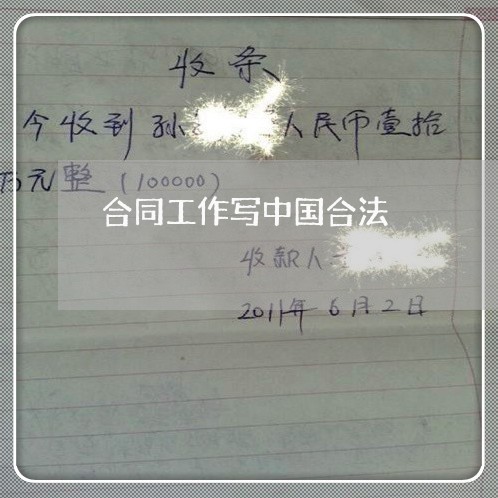 收条
今收到孙 人民币壹拾
万元整(100000)
合同工作写中国合法
收款人
2011年6月2日